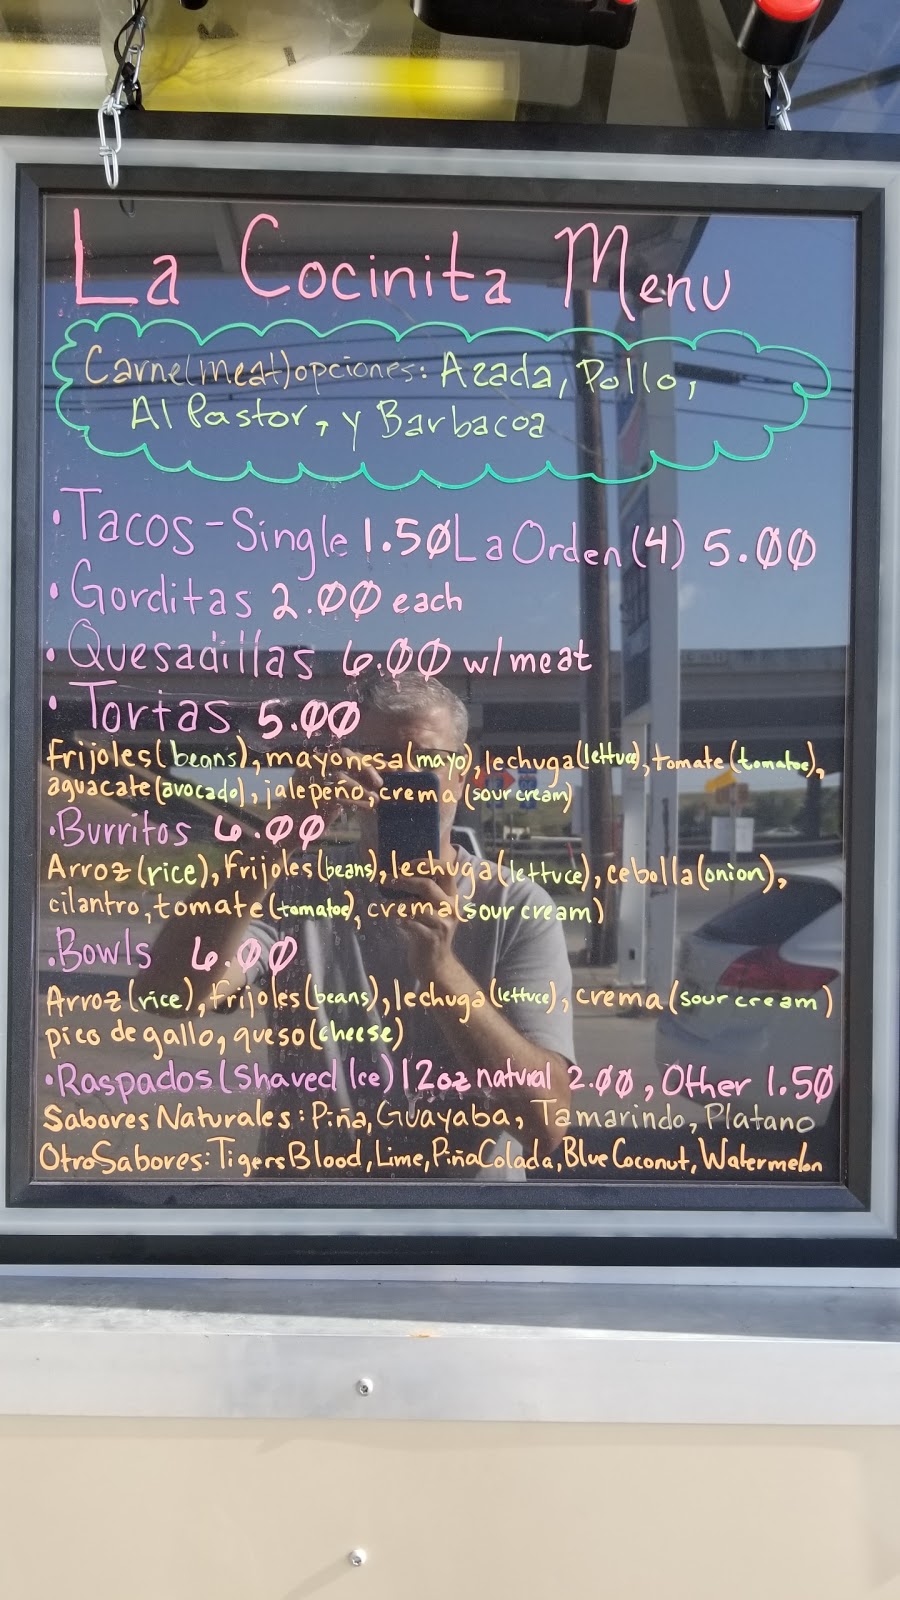 La Cocinita Menu
Carne(meat)opciones: Azada, Pollo,
Al Pastor, y Barbacoa
•Tacos-Single 1.50 La Orden (4) 5.00
•Gorditas 2.00 each
•Quesadillas 6.00 w/meat
•Tortas 5.00
Frijoles(beans), mayonesa(mayo), lechuga(lettuce), tomate(tomatoe),
aguacate(avocado), jalepeño, crema (sour cream)
•Burritos 6.00
Arroz(rice), Frijoles(beans), lechuga(lettuce), cebolla(onion),
cilantro, tomate(tomatoe), crema(sour cream)
•Bowls 6.00
Arroz(rice), frijoles(beans), lechuga(lettuce), crema(sour cream)
pico de gallo, queso(cheese)
•Raspados(Shaved Ice) 12oz natural 2.00, Other 1.50
Sabores Naturales: Piña, Guayaba, Tamarindo, Platano
Otro Sabores: Tigers Blood, Lime, Piña Colada, Blue Coconut, Watermelon